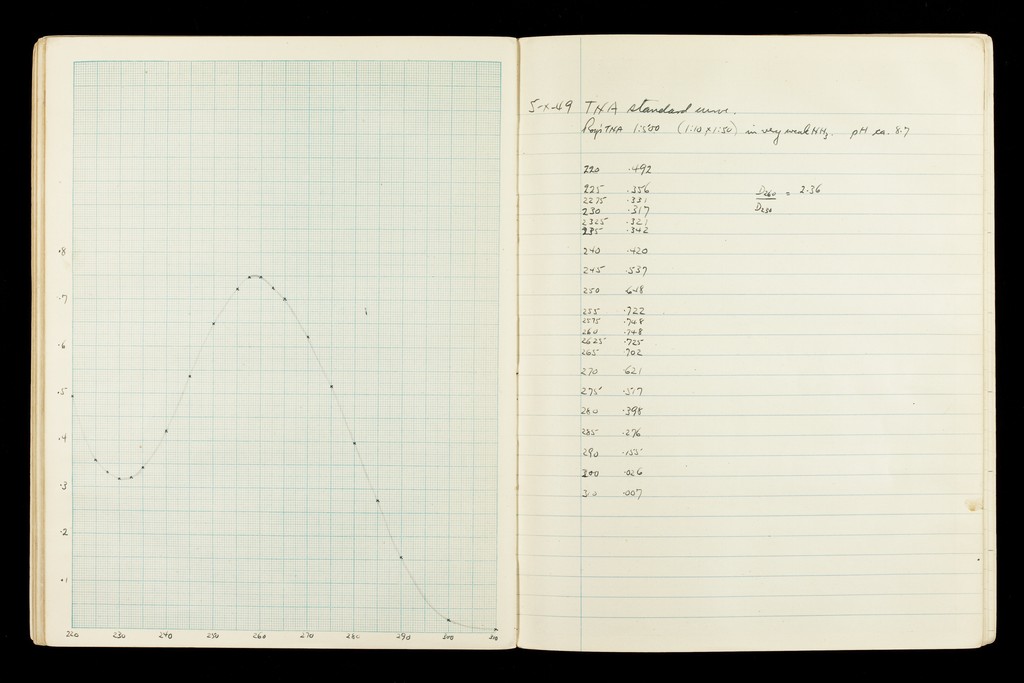 .8
.7
.6
.5
.4
.3
.2
.1
220 230 240 250 260 270 280 290 300 310
5-X-49 TNA standard curve.
TNA 1:500 (1:10 x 1:50) in very weak NH3. pH ca. 8.7
220 .492
225 .356
2275 .331
230 .317
2325 .321
235 .342
240 .420
245 .537
250 .648
255 .722
2575 .748
260 .748
2625 .725
265 .702
270 .621
275 .517
280 .398
285 .276
290 .155
300 .026
310 .007
D260 = 2.36
D230